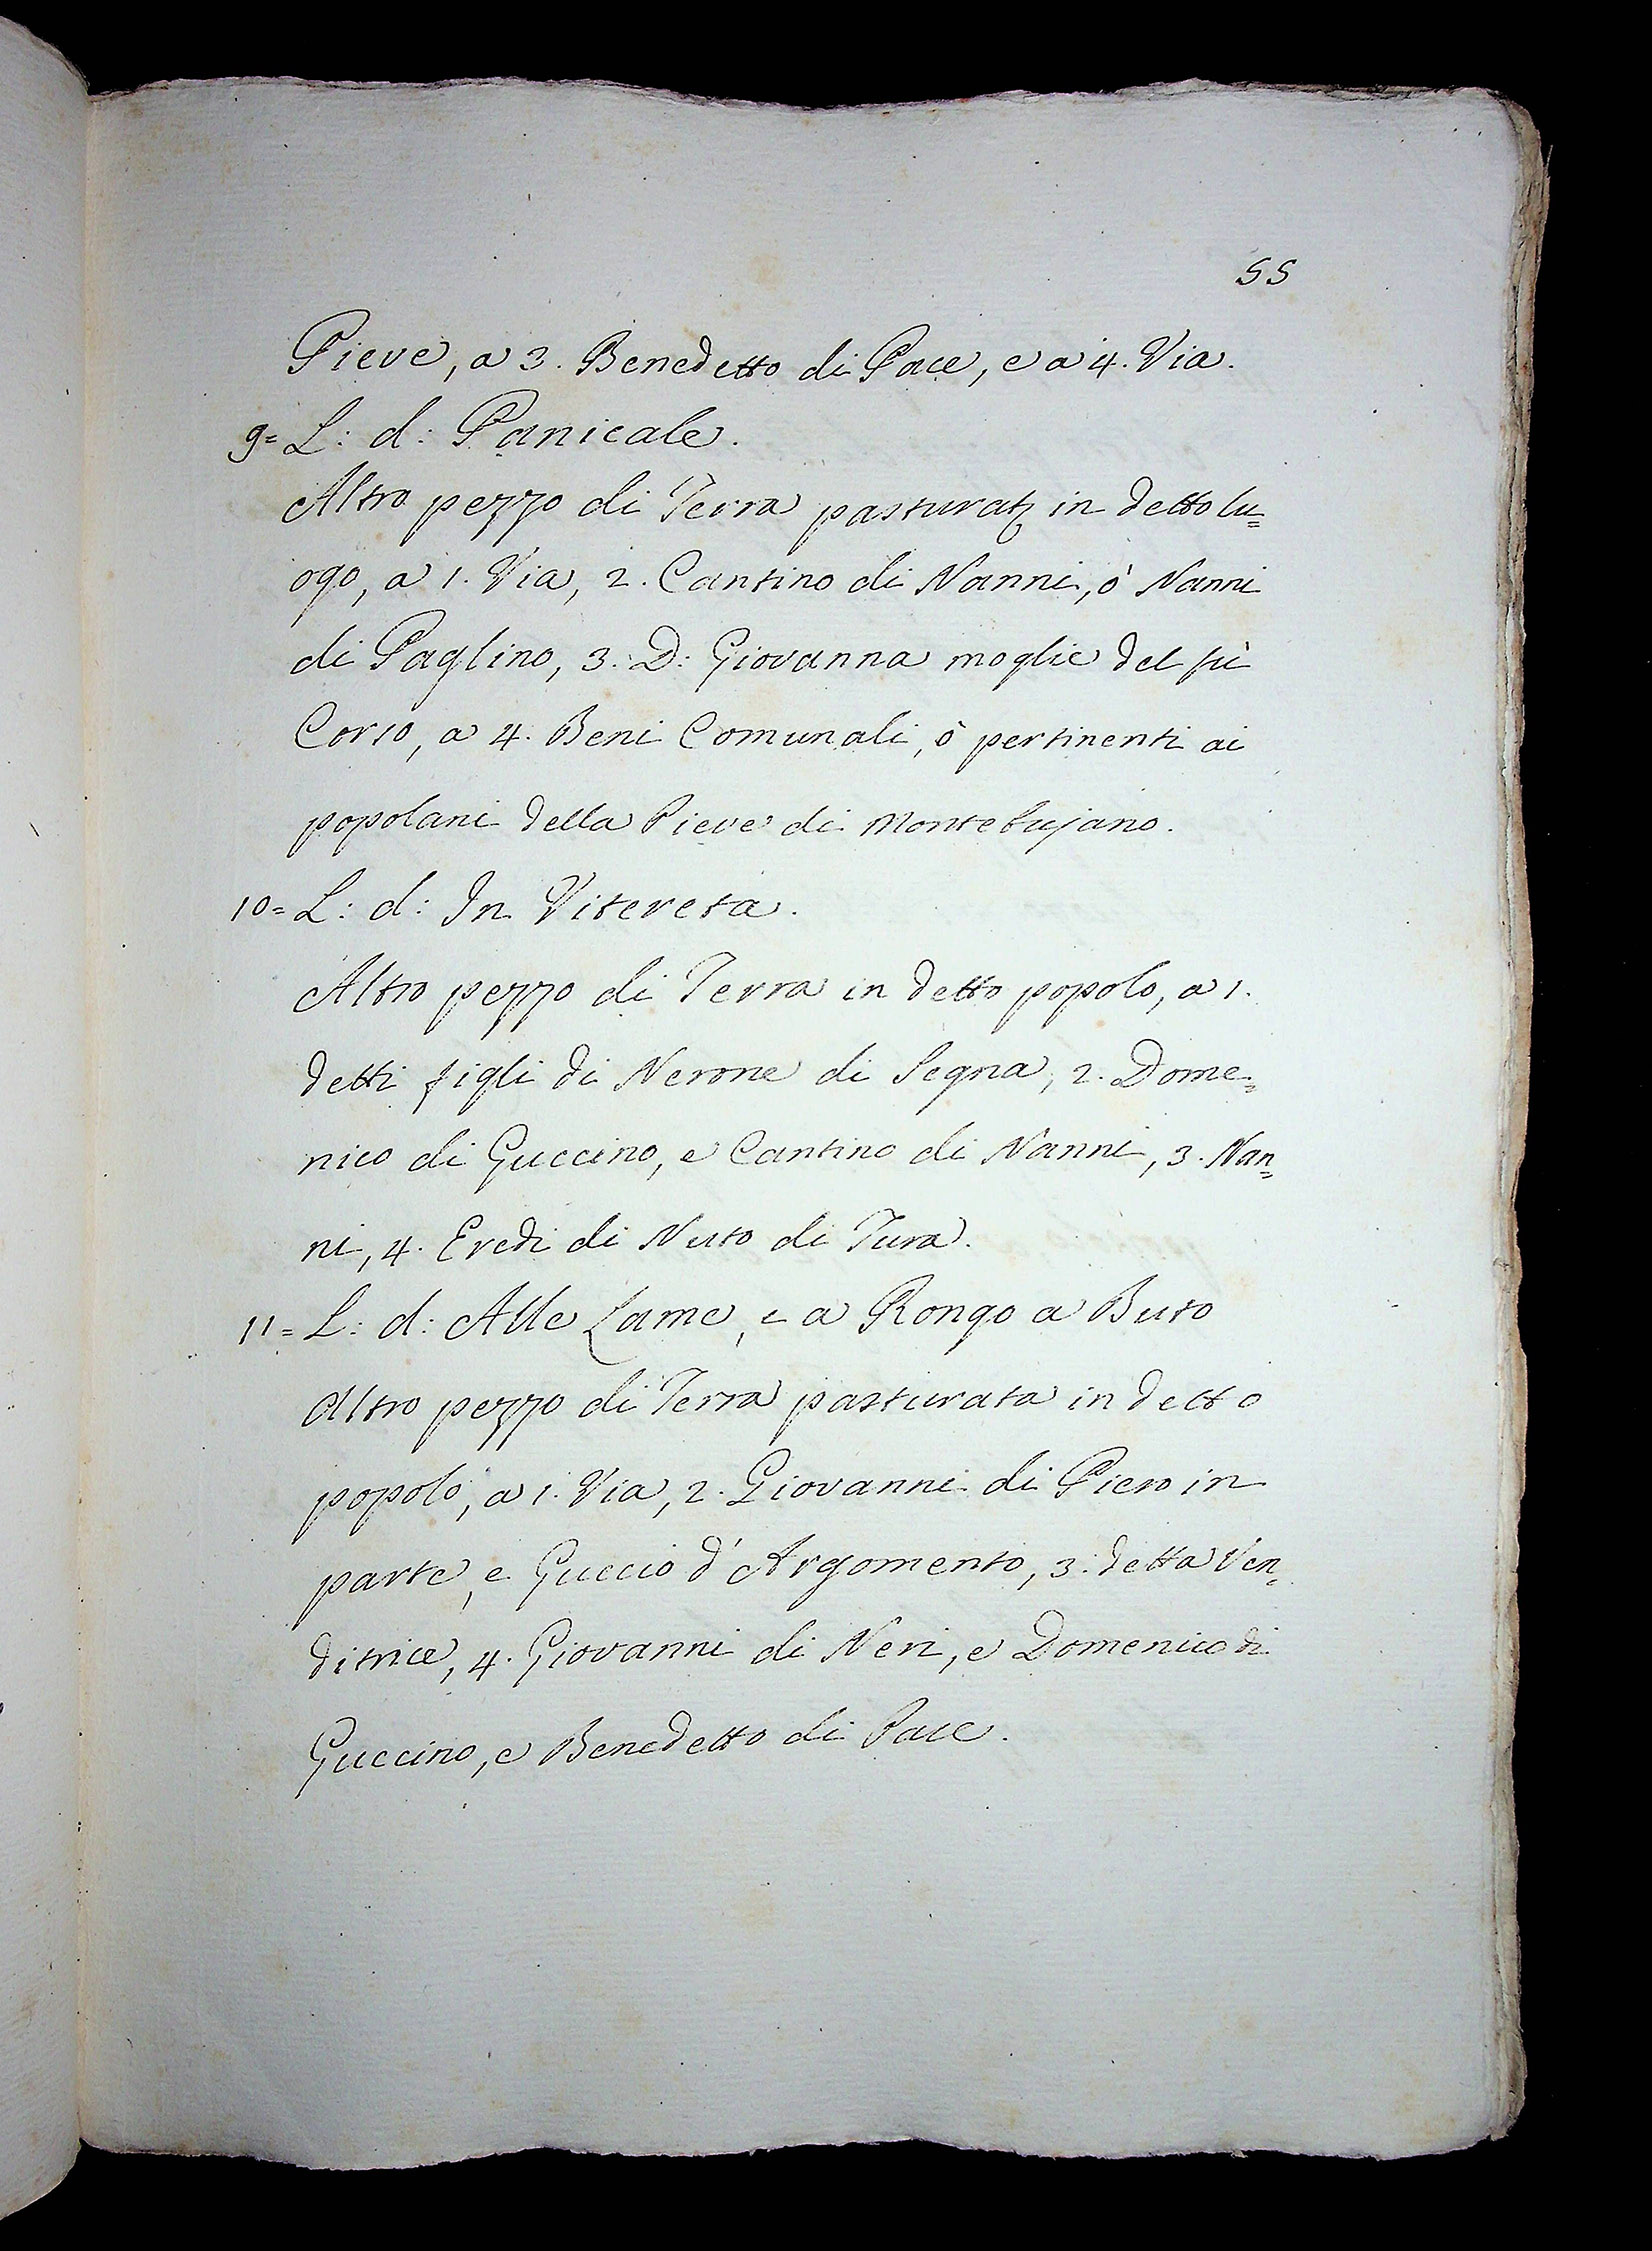 55
Pieve, a 3. Benedetto di Pace, e a 4. Via.
9= L: d: Panicale.
Altro pezzo di Terra pasturat in detto lu=
ogo, a 1. Via, 2. Cantino di Nanni, ò Nanni
di Paglino, 3. D: Giovanna moglie del fù
Corso, a 4. Beni Comunali, ò pertinenti ai
popolani della Pieve di Montebujano.
10= L: d: In Vitereta.
Altro pezzo di Terra in detto popolo, a 1.
detti figli di Nerone di Segna, 2. Dome=
nico di Guccino, e Cantino di Nanni, 3. Nan=
ni, 4. Eredi di Nuto di Tura.
11= L: d: Alle Lame, e a Rongo a Buto
Altro pezzo di Terra pasturata in detto
popolo, a 1. Via, 2. Giovanni di Piero in
parte, e Guccio d'Argomento, 3. detta Ven=
ditrice, 4. Giovanni di Neri, e Domenico di
Guccino, e Benedetto di Pace.